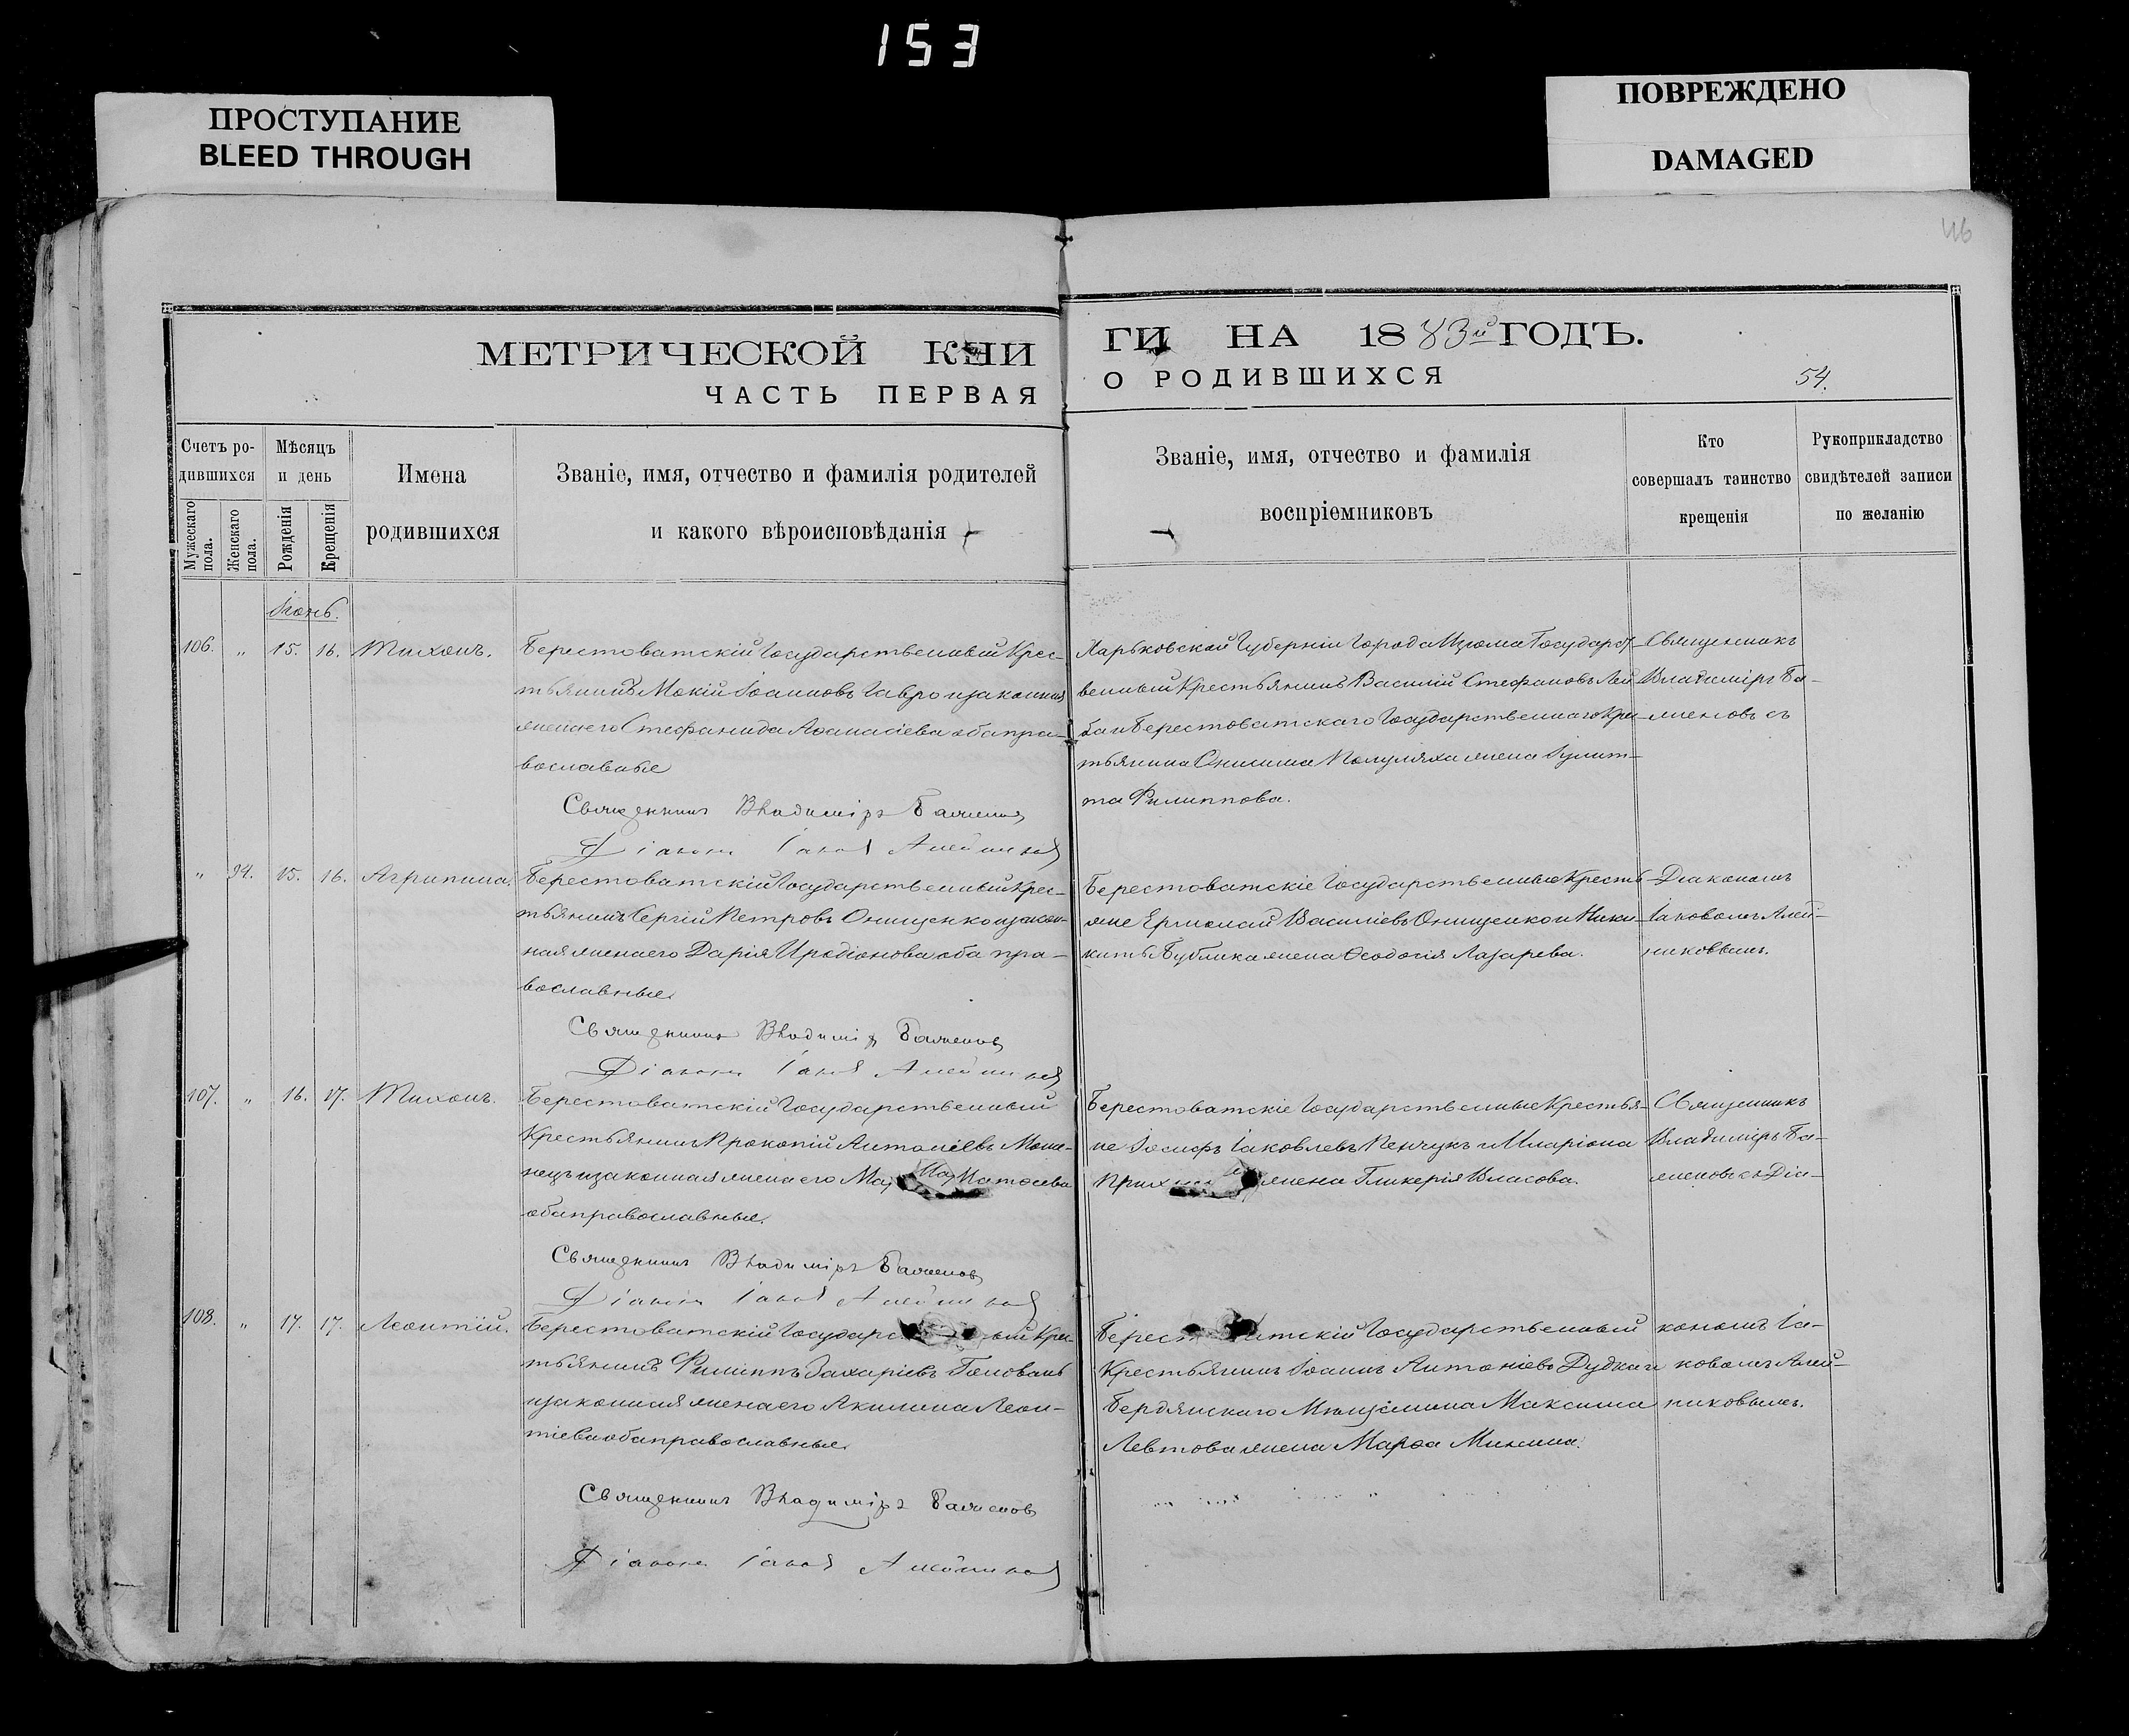 153
ПРОСТУПАНИЕ
BLEED THROUGH
ПОВРЕЖДЕНО
DAMAGED
46
МЕТРИЧЕСКОЙ КНИ
ЧАСТЬ ПЕРВАЯ
ГИ НА 1883й ГОДЪ.
О РОДИВШИХСЯ
54.
Счетъ ро-
дившихся
Мужескаго
пола.
Женскаго
пола.
Мѣсяцъ
и день
Рожденія
Крещенія
Имена
родившихся
Званіе, имя, отчество и фамилія родителей
и какого вѣроисповѣданія
Званіе, имя, отчество и фамилія
воспріемниковъ
Кто
совершалъ таинство
крещенія
Рукоприкладство
свидѣтелей записи
по желанію
Іюнь.
106. „ 15. 16. Тихонъ.
Берестоватскій Государственный Крес-
тьянинъ Мокій Іоанновъ и законная
жена его Стефанида Аѳанасіева оба пра-
вославные
Священникъ Владиміръ Баженовъ
Діаконъ Іаковъ Алейников
Харьковской Губерніи Города Изюма Государст-
венный Крестьянинъ Василій Стефановъ
и Берестоватскаго Государственнаго Крес-
тьянина Онисима Полуляха жена Іулит-
та Филиппова.
Священникъ
Владиміръ Ба-
женовъ съ
„ 94. 15. 16. Агрипина.
Берестоватскій Государственный Крес-
тьянинъ Сергій Петровъ Онищенко и закон-
ная жена его Дарія Иродіонова оба пра-
вославные.
Священникъ Владиміръ Баженовъ
Діаконъ Іаковъ Алейников
Берестоватскіе Государственные Кресть-
яне Ермолай Василіевъ Онищенко и Ники-
киты Бублика жена Ѳеодосія Лазарева.
Діакономъ
Іаковомъ Алей-
никовымъ.
107. „ 16. 17. Тихонъ.
Берестоватскій Государственный
Крестьянинъ Прокопій Антоніевъ
и законная жена его
оба православные.
Священникъ Владиміръ Баженовъ
Діаконъ Іаковъ Алейников
Берестоватскіе Государственные Крестья-
не Іосифъ Іаковлевъ Пенчукъ и Иларіона
жена Гликерія Власова.
Священникъ
Владиміръ Ба-
женовъ съ Діа-
108. „ 17. 17. Леонтій.
Берестоватскій Крес-
тьянинъ Филиппъ Захаріевъ Головань
и законная жена его Акилина Леон-
тіева оба православные.
Священникъ Владиміръ Баженовъ
Діаконъ Іаковъ Алейников
Государственный
Крестьянинъ Іоаннъ Антоніевъ Дудка и
Бердянскаго Мѣщанина Максима
Левтова жена Марѳа Минина.
кономъ Іа-
ковомъ Алей-
никовымъ.